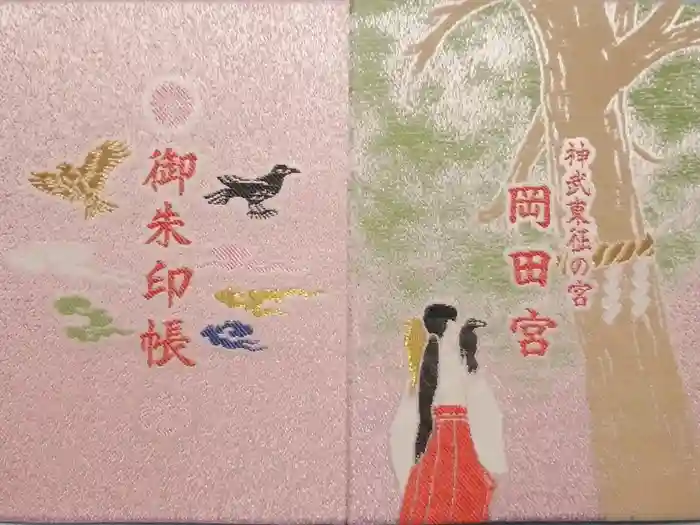 神武東征の宮
岡田宮
御朱印帳